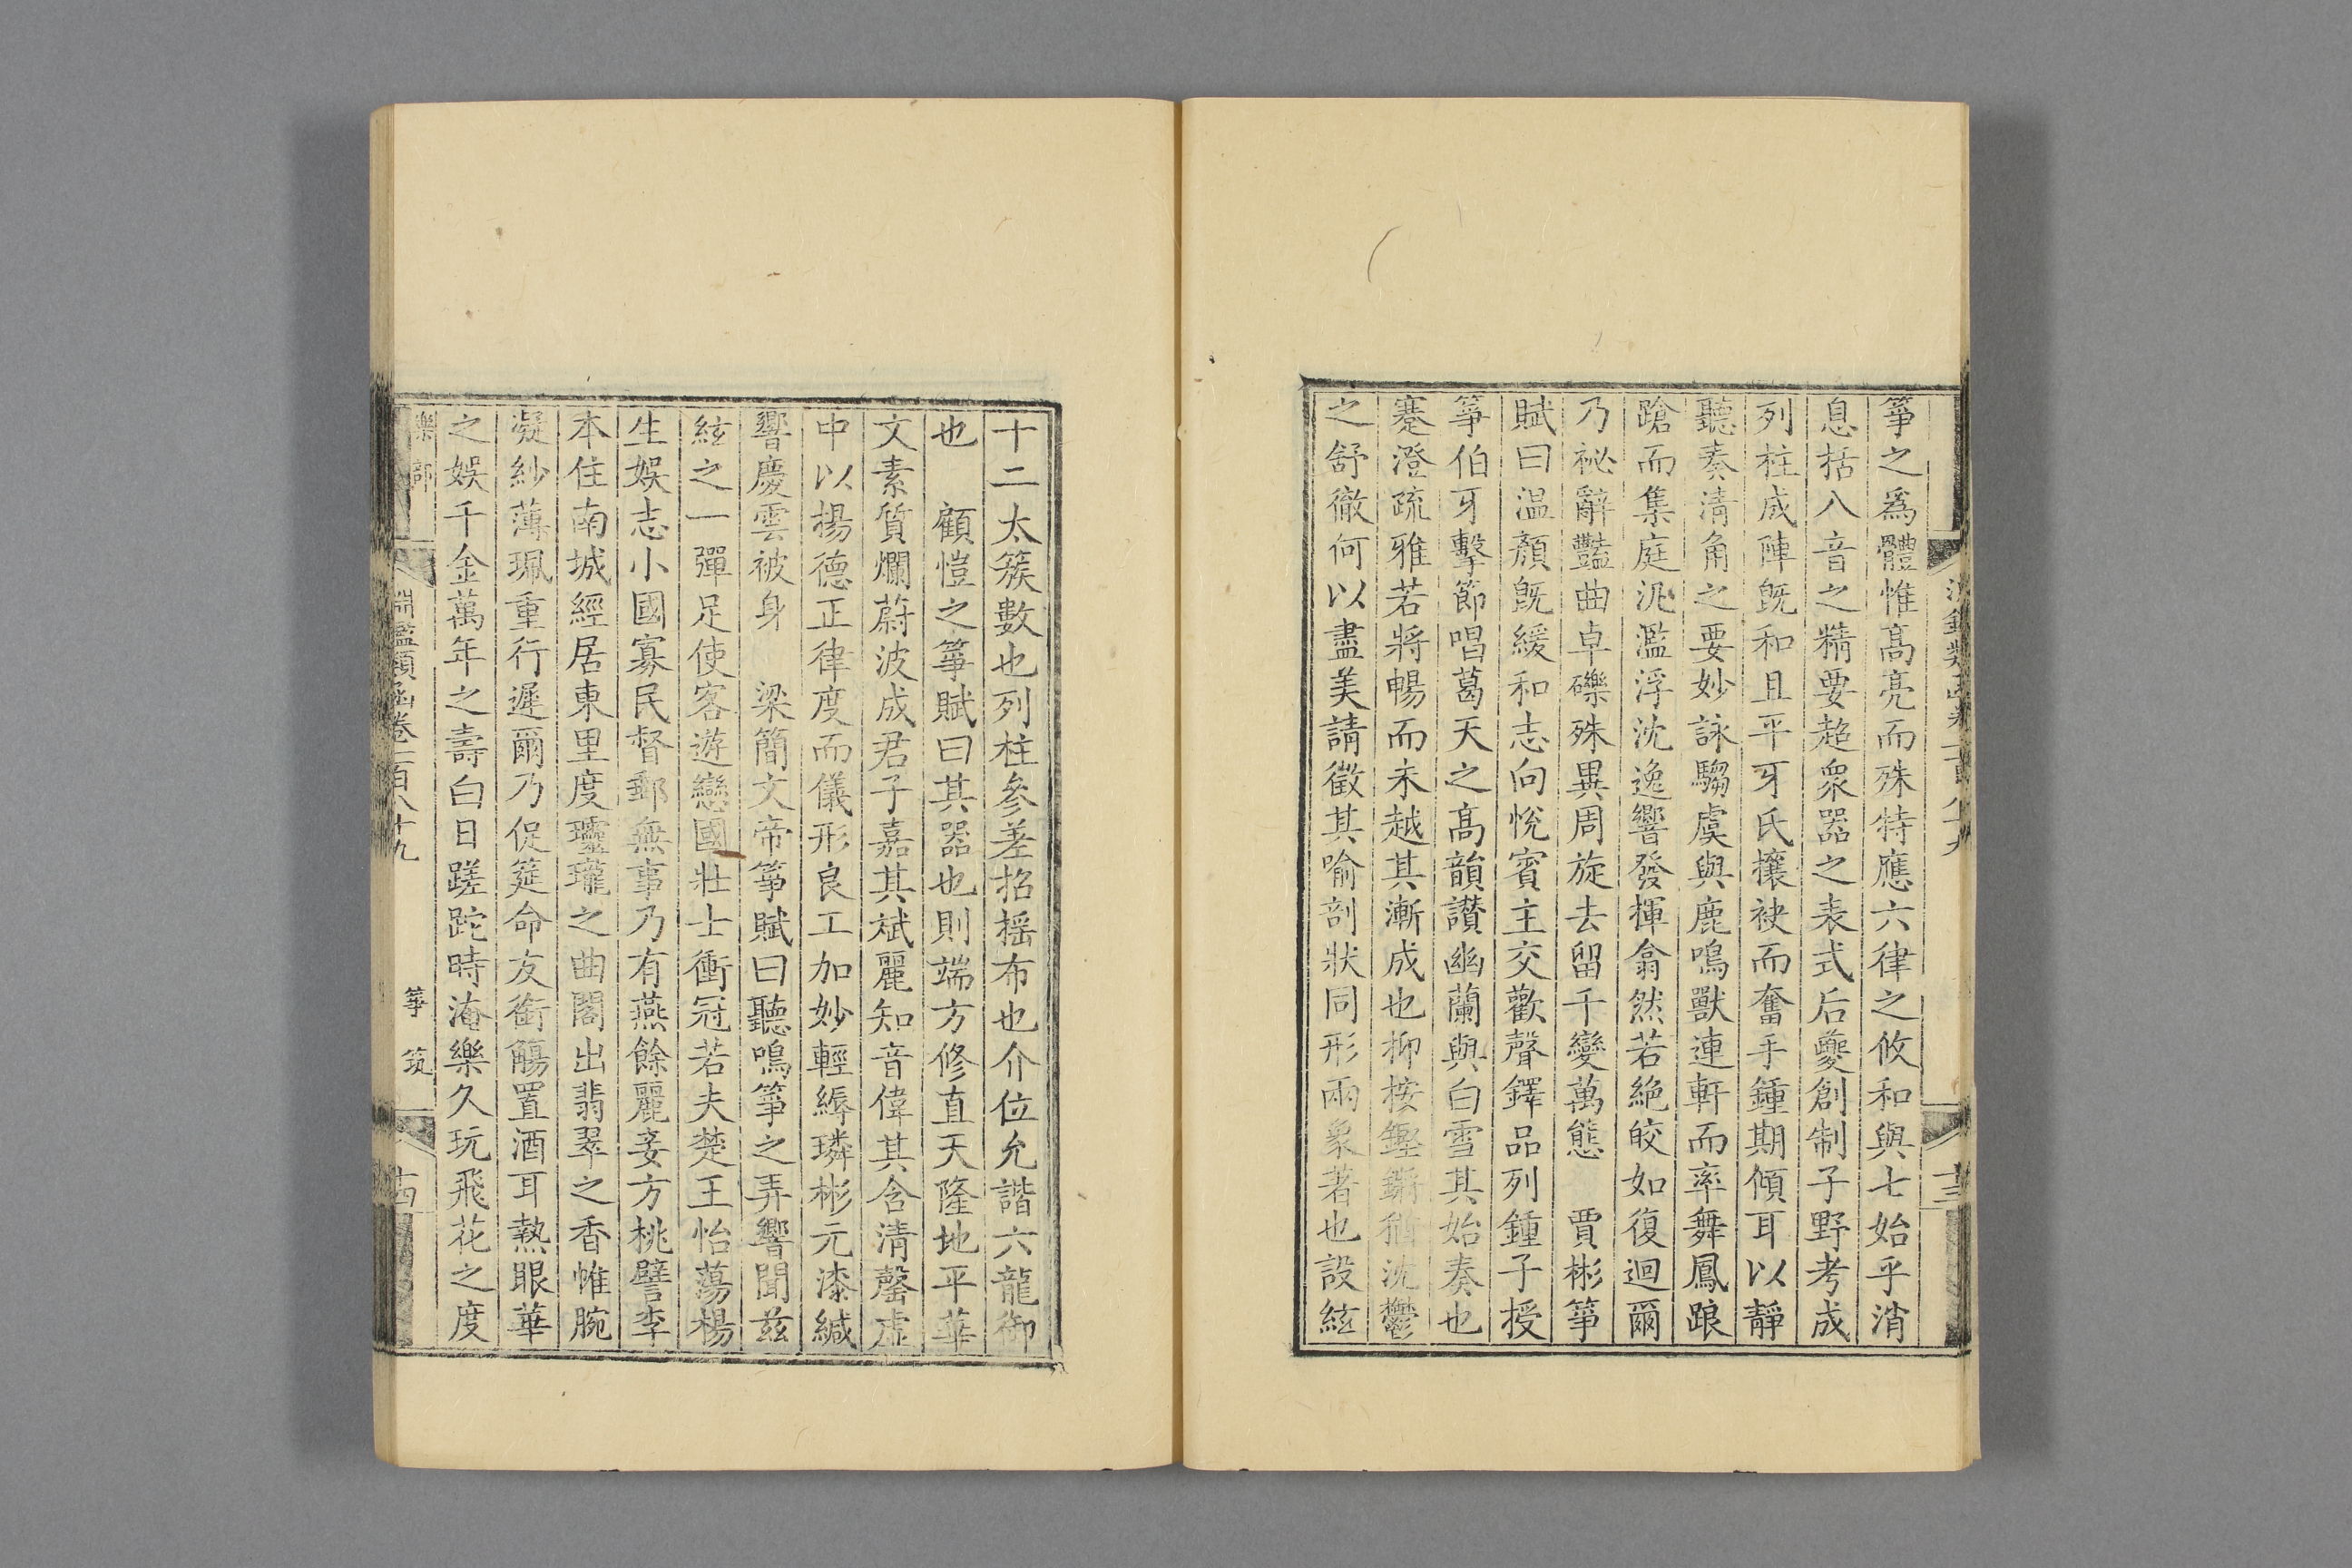 箏之爲體惟高亮而殊特應六律之攸和與七始乎消
息括八音之精要超衆器之表式后夔創制子野考成
列柱成陣既和且平牙氏攘袂而奮手鍾期傾耳以靜
聽奏清角之要妙詠騶虞與鹿鳴獸連軒而率舞鳳踉
蹌而集庭汎濫浮沈逸響發揮翕然若絕皎如復迴爾
乃祕辭豔曲卓礫殊異周旋去留千變萬態 賈彬箏
賦曰温顏既緩和志向悅賓主交歡聲鐸品列鍾子授
箏伯牙擊節唱葛天之高韻讚幽蘭與白雪其始奏也
蹇澄疏雅若將暢而未越其漸成也抑按鏗鏘猶沈鬱
之舒徹何以盡美請徵其喻剖狀同形兩象著也設絃
十二太簇數也列柱參差招搖布也介位允諧六龍御
也 顧愷之箏賦曰其器也則端方修直天隆地平華
文素質爛蔚波成君子嘉其斌麗知音偉其含清罄虛
中以揚德正律度而儀形良工加妙輕縟璘彬元漆緘
響慶雲被身 梁簡文帝箏賦曰聽鳴箏之弄響聞茲
絃之一彈足使客遊戀國壯士衝冠若夫楚王怡蕩楊
生娛志小國寡民督郵無事乃有燕餘麗妾方桃譬李
本住南城經居東里度瓏瓏之曲閣出翡翠之香帷腕
凝紗薄珮重行遲爾乃促筵命友銜觴置酒耳熱眼華
之娛千金萬年之壽白日蹉跎時淹樂久玩飛花之度
樂部
淵鑑類函卷一百八十九
箏 筑
十四